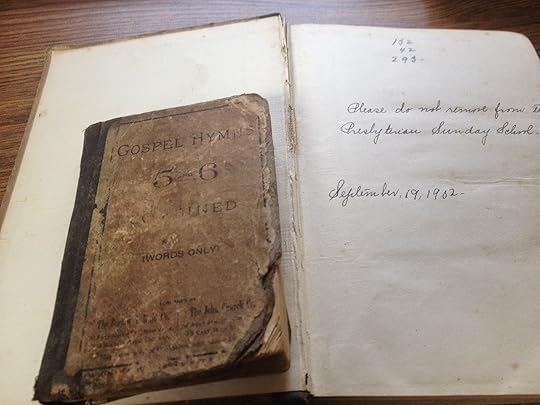 GOSPEL HYMNS
5 AND 6
COMBINED
(WORDS ONLY)
The John Church Co.
152
42
293-
Please do not remove from
Presbyterian Sunday School.
September, 19, 1902-